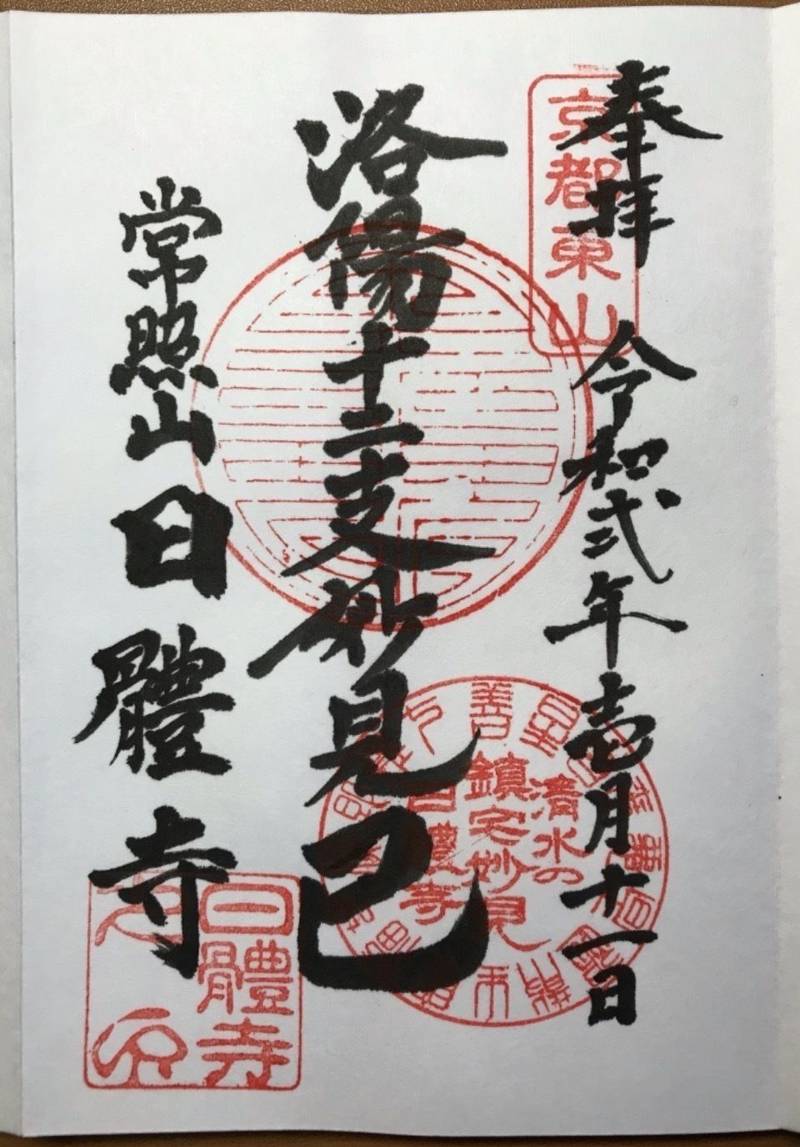 奉拝
令和弐年壱月十一日
京都東山
洛陽十二支妙見巳
清水の
鎮宅妙見
日體寺
常照山日體寺
日體寺